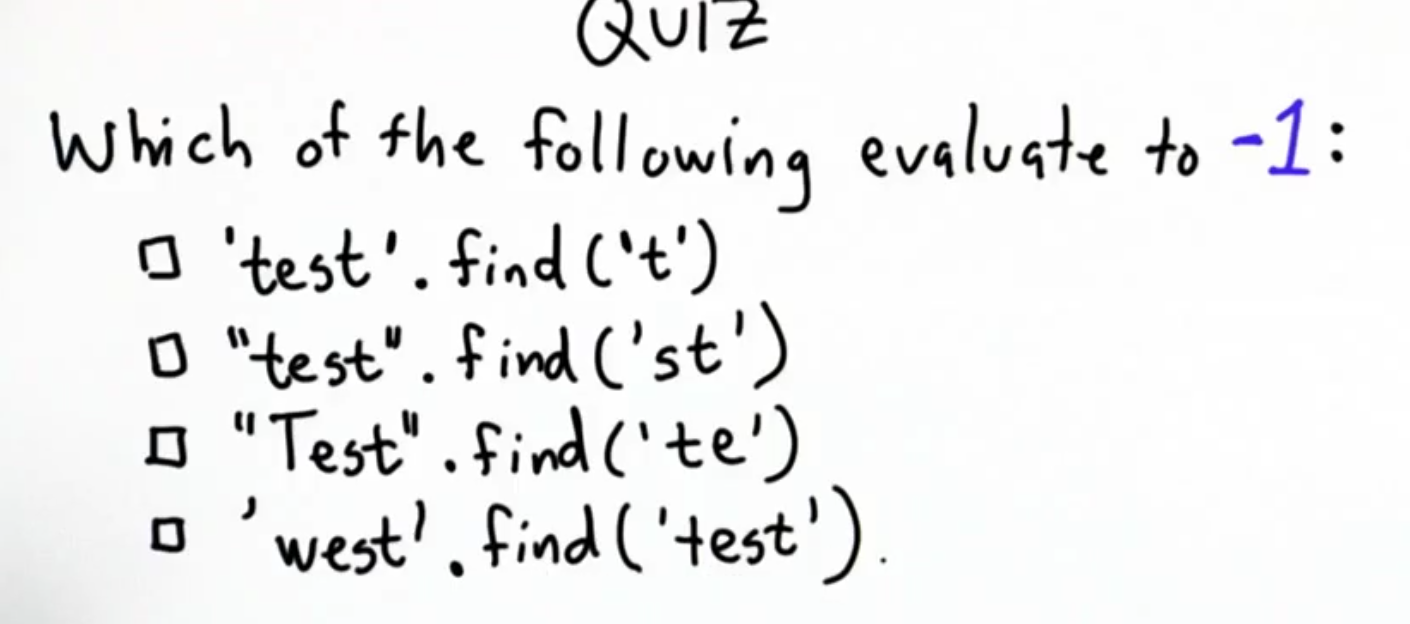 QUIZ
Which of the following evaluate to -1:
'test'.find('t')
"test".find('st')
"Test".find('te')
'west'.find('test').